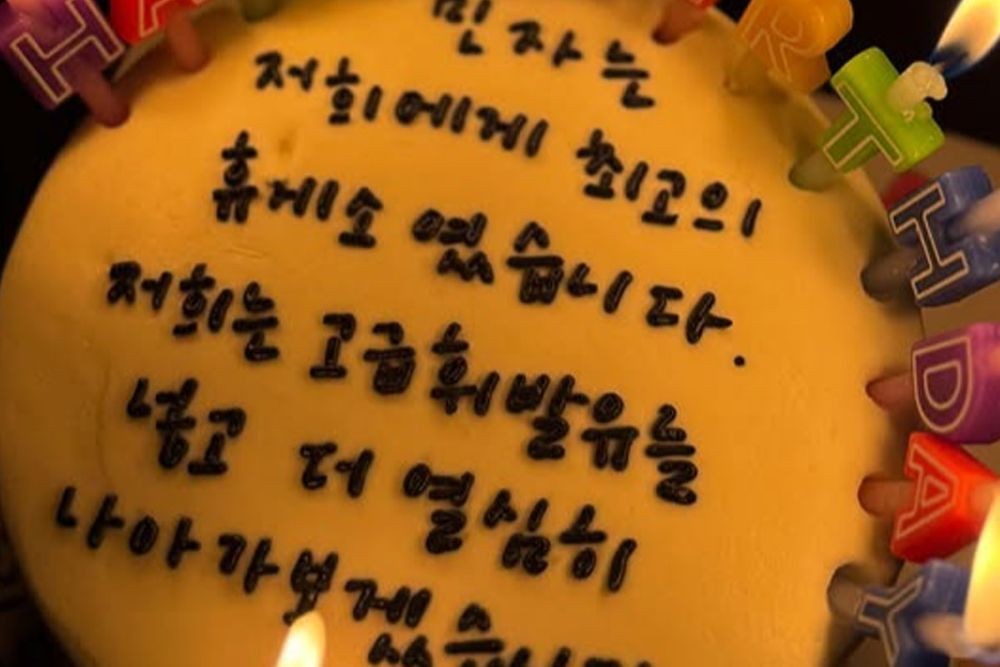 민자는
저희에게 최고의
휴게소 였습니다.
저희는 고급휘발유를
넣고 더 열심히
나아가보겠습니다
HA
RTHDAY